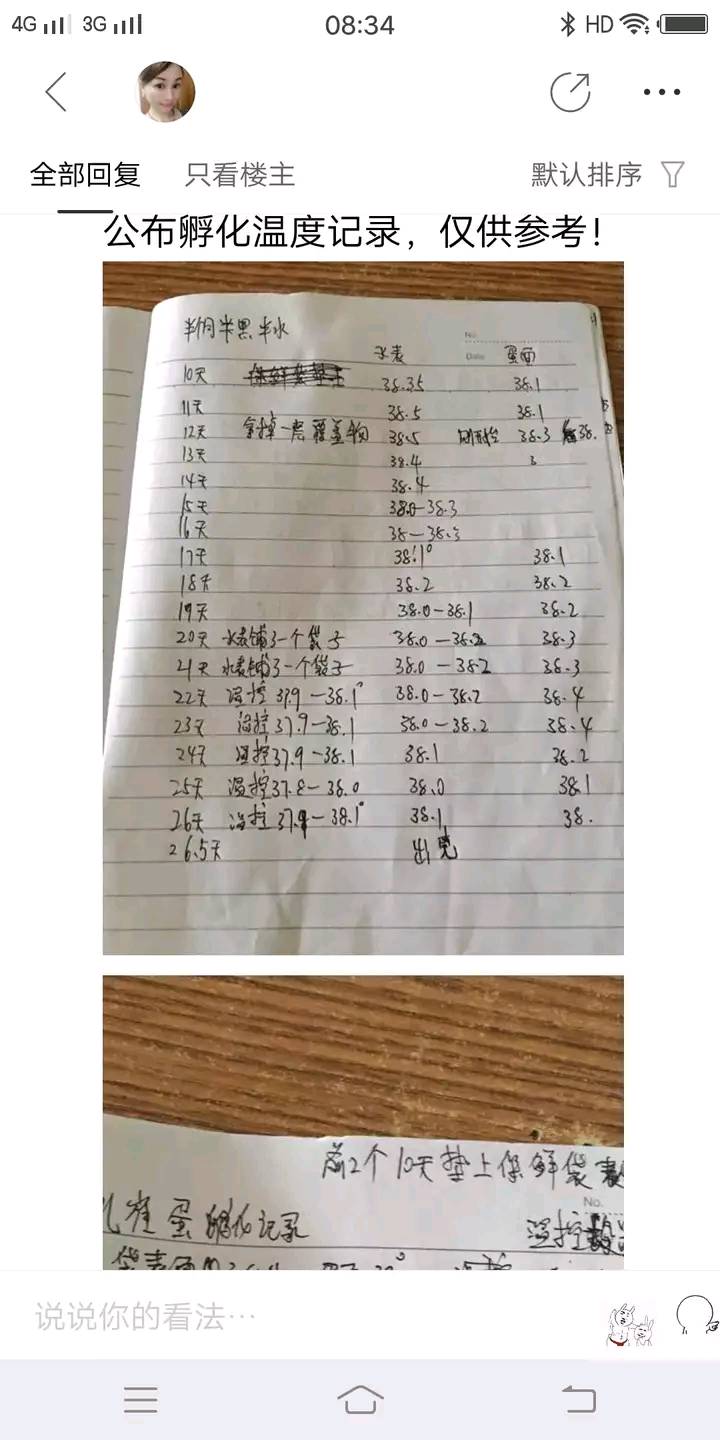 4G 3G 08:34 HD
全部回复 只看楼主 默认排序
公布孵化温度记录，仅供参考！
No
水表 Date 蛋面
10天 38.35 38.1
11天 38.5 38.1
12天 拿掉一层覆盖物 38.5 38.3 38.
13天 38.4 3
14天 38.4
15天 38.0-38.3
16天 38-38.3
17天 38.1° 38.1
18天 38.2 38.2
19天 38.0-38.1 38.2
20天 水表铺了一个袋子 38.0-38.2 38.3
21天 水表铺了一个袋子 38.0-38.2 38.3
22天 温控37.9-38.1° 38.0-38.2 38.4
23天 温控37.9-38.1 38.0-38.2 38.4
24天 温控37.9-38.1 38.1 38.2
25天 温控37.8-38.0 38.0 38.1
26天 温控37.9-38.1° 38.1 38.
26.5天 出壳
前2个10天垫上保鲜袋
No.
孔雀蛋孵化记录 温控
说说你的看法…